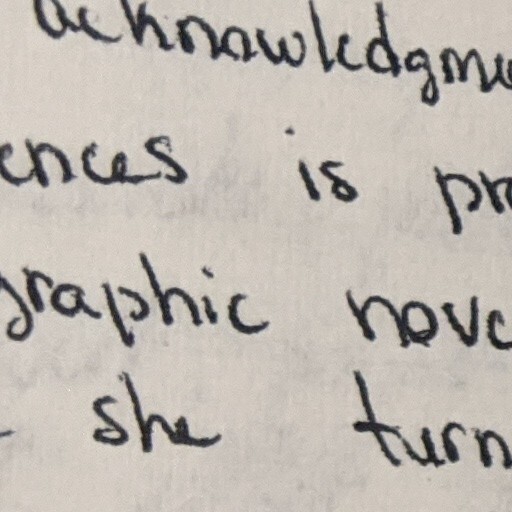 acknowledgme
ences is pr
graphic nove
- she turn